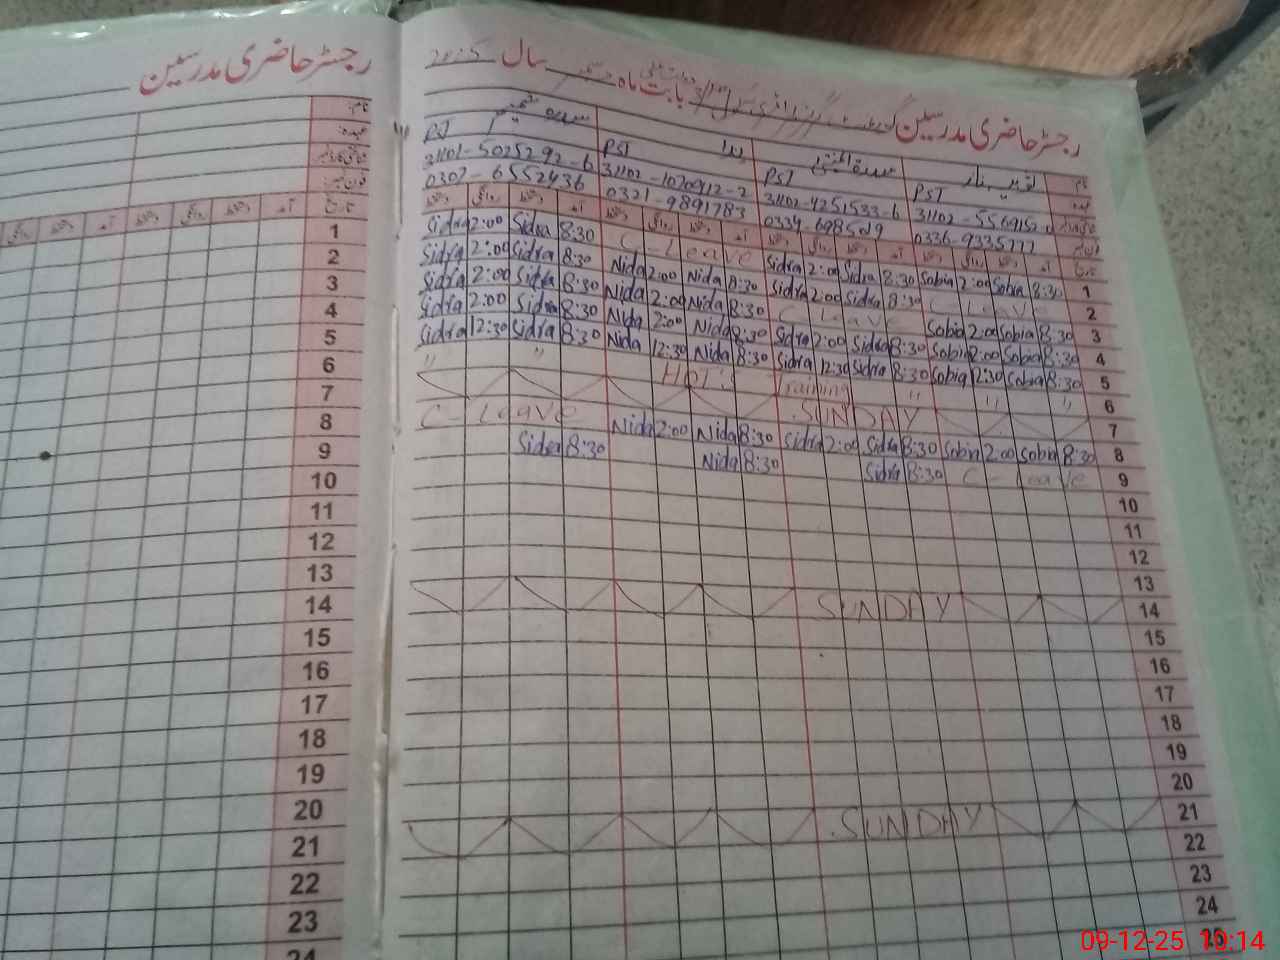 رجسٹر حاضری مدرسین
رجسٹر حاضری مدرسین بابت ماہ سال 2025
نام
عہدہ
PST PST PST PST
31102-4251533-6
0307-6552436 0321-9891783
تاریخ آمد دستخط روانگی دستخط آمد دستخط روانگی دستخط آمد دستخط روانگی دستخط آمد دستخط روانگی دستخط
1 Sidra 2:00 Sidra 8:30 C-Leave Sidra 2:00 Sidra 8:30 Sobia 2:00 Sobia 8:30 1
2 Sidra 2:00 Sidra 8:30 Nida 2:00 Nida 8:30 Sidra 2:00 Sidra 8:30 C Leave 2
3 Sidra 2:00 Sidra 8:30 Nida 2:00 Nida 8:30 C Leave Sobia 2:00 Sobia 8:30 3
4 Sidra 2:00 Sidra 8:30 Nida 2:00 Nida 8:30 Sidra 2:00 Sidra 8:30 Sobia 2:00 Sobia 8:30 4
5 Sidra 12:30 Sidra 8:30 Nida 12:30 Nida 8:30 Sidra 12:30 Sidra 8:30 Sobia 12:30 Sobia 8:30 5
6 " " Training " " " 6
7 SUNDAY 7
8 C-Leave Nida 2:00 Nida 8:30 Sidra 2:00 Sidra 8:30 Sobia 2:00 Sobia 8:30 8
9 Sidra 8:30 Nida 8:30 Sidra 8:30 C-Leave 9
10 10
11 11
12 12
13 13
14 SUNDAY 14
15 15
16 16
17 17
18 18
19 19
20 20
21 SUNDAY 21
22 22
23 23
24 24
09-12-25 10:14